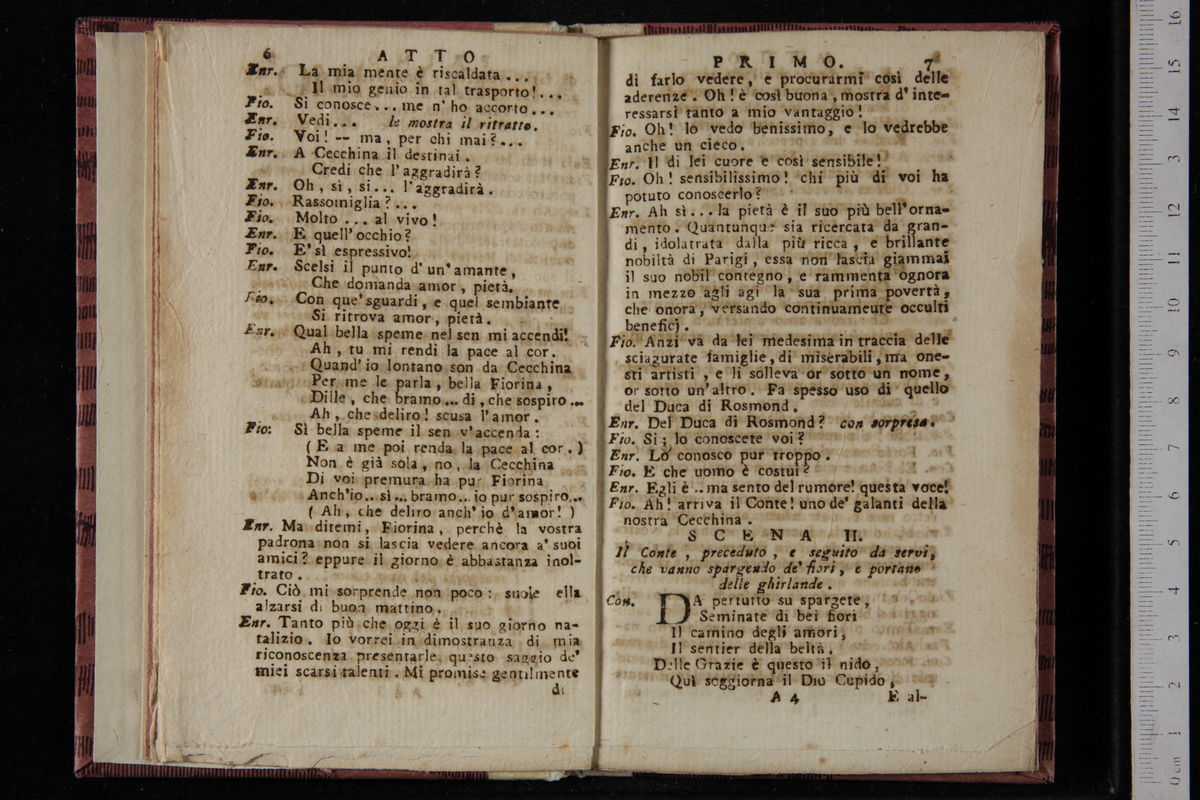 6 ATTO
Enr. La mia mente è riscaldata...
Il mio genio in tal trasporto!...
Fio. Si conosce... me n' ho accorto...
Enr. Vedi... le mostra il ritratto.
Fio. Voi! -- ma, per chi mai?...
Enr. A Cecchina il destinai.
Credi che l'aggradirà?
Enr. Oh, sì, si... l'aggradirà.
Fio. Rassomiglia?...
Fio. Molto... al vivo!
Enr. E quell'occhio?
Fio. E' sì espressivo!
Enr. Scelsi il punto d'un'amante,
Che domanda amor, pietà.
Fio. Con que' sguardi, e quel sembiante
Si ritrova amor, pietà.
Enr. Qual bella speme nel sen mi accendi!
Ah, tu mi rendi la pace al cor.
Quand'io lontano son da Cecchina
Per me le parla, bella Fiorina,
Dille, che bramo... di, che sospiro...
Ah, che deliro! scusa l'amor.
Fio: Sì bella speme il sen v'accenda:
(E a me poi renda la pace al cor.)
Non è già sola, no, la Cecchina
Di voi premura ha pur Fiorina
Anch'io.. sì... bramo... io pur sospiro...
(Ah, che deliro anch'io d'amor!)
Enr. Ma ditemi, Fiorina, perchè la vostra
padrona non si lascia vedere ancora a' suoi
amici? eppure il giorno è abbastanza inol-
trato.
Fio. Ciò mi sorprende non poco: suole ella
alzarsi di buon mattino.
Enr. Tanto più che oggi è il suo giorno na-
talizio. Io vorrei in dimostranza di mia
riconoscenza presentarle questo saggio de'
miei scarsi talenti. Mi promise gentilmente
di
PRIMO. 7
di farlo vedere, e procurarmi così delle
aderenze. Oh! è così buona, mostra d'inte-
ressarsi tanto a mio vantaggio!
Fio. Oh! lo vedo benissimo, e lo vedrebbe
anche un cieco.
Enr. Il di lei cuore è così sensibile!
Fio. Oh! sensibilissimo! chi più di voi ha
potuto conoscerlo?
Enr. Ah sì... la pietà è il suo più bell'orna-
mento. Quantunque sia ricercata da gran-
di, idolatrata dalla più ricca, e brillante
nobiltà di Parigi, essa non lascia giammai
il suo nobil contegno, e rammenta ognora
in mezzo agli agi la sua prima povertà,
che onora, versando continuameute occulti
beneficj.
Fio. Anzi va da lei medesima in traccia delle
sciagurate famiglie, di miserabili, ma one-
sti artisti, e li solleva or sotto un nome,
or sotto un'altro. Fa spesso uso di quello
del Duca di Rosmond.
Enr. Del Duca di Rosmond? con sorpresa.
Fio. Si; lo conoscete voi?
Enr. Lo conosco pur troppo.
Fio. E che uomo è costui?
Enr. Egli è .. ma sento del rumore! questa voce!
Fio. Ah! arriva il Conte! uno de' galanti della
nostra Cecchina.
SCENA II.
Il Conte, preceduto, e seguito da servi,
che vanno spargendo de' fiori, e portano
delle ghirlande.
Con. DA pertutto su spargete,
Seminate di bei fiori
Il camino degli amori,
Il sentier della beltà.
Delle Grazie è questo il nido,
Quì soggiorna il Dio Cupido,
A 4 E al-
0 cm 1 2 3 4 5 6 7 8 9 10 11 12 13 14 15 16